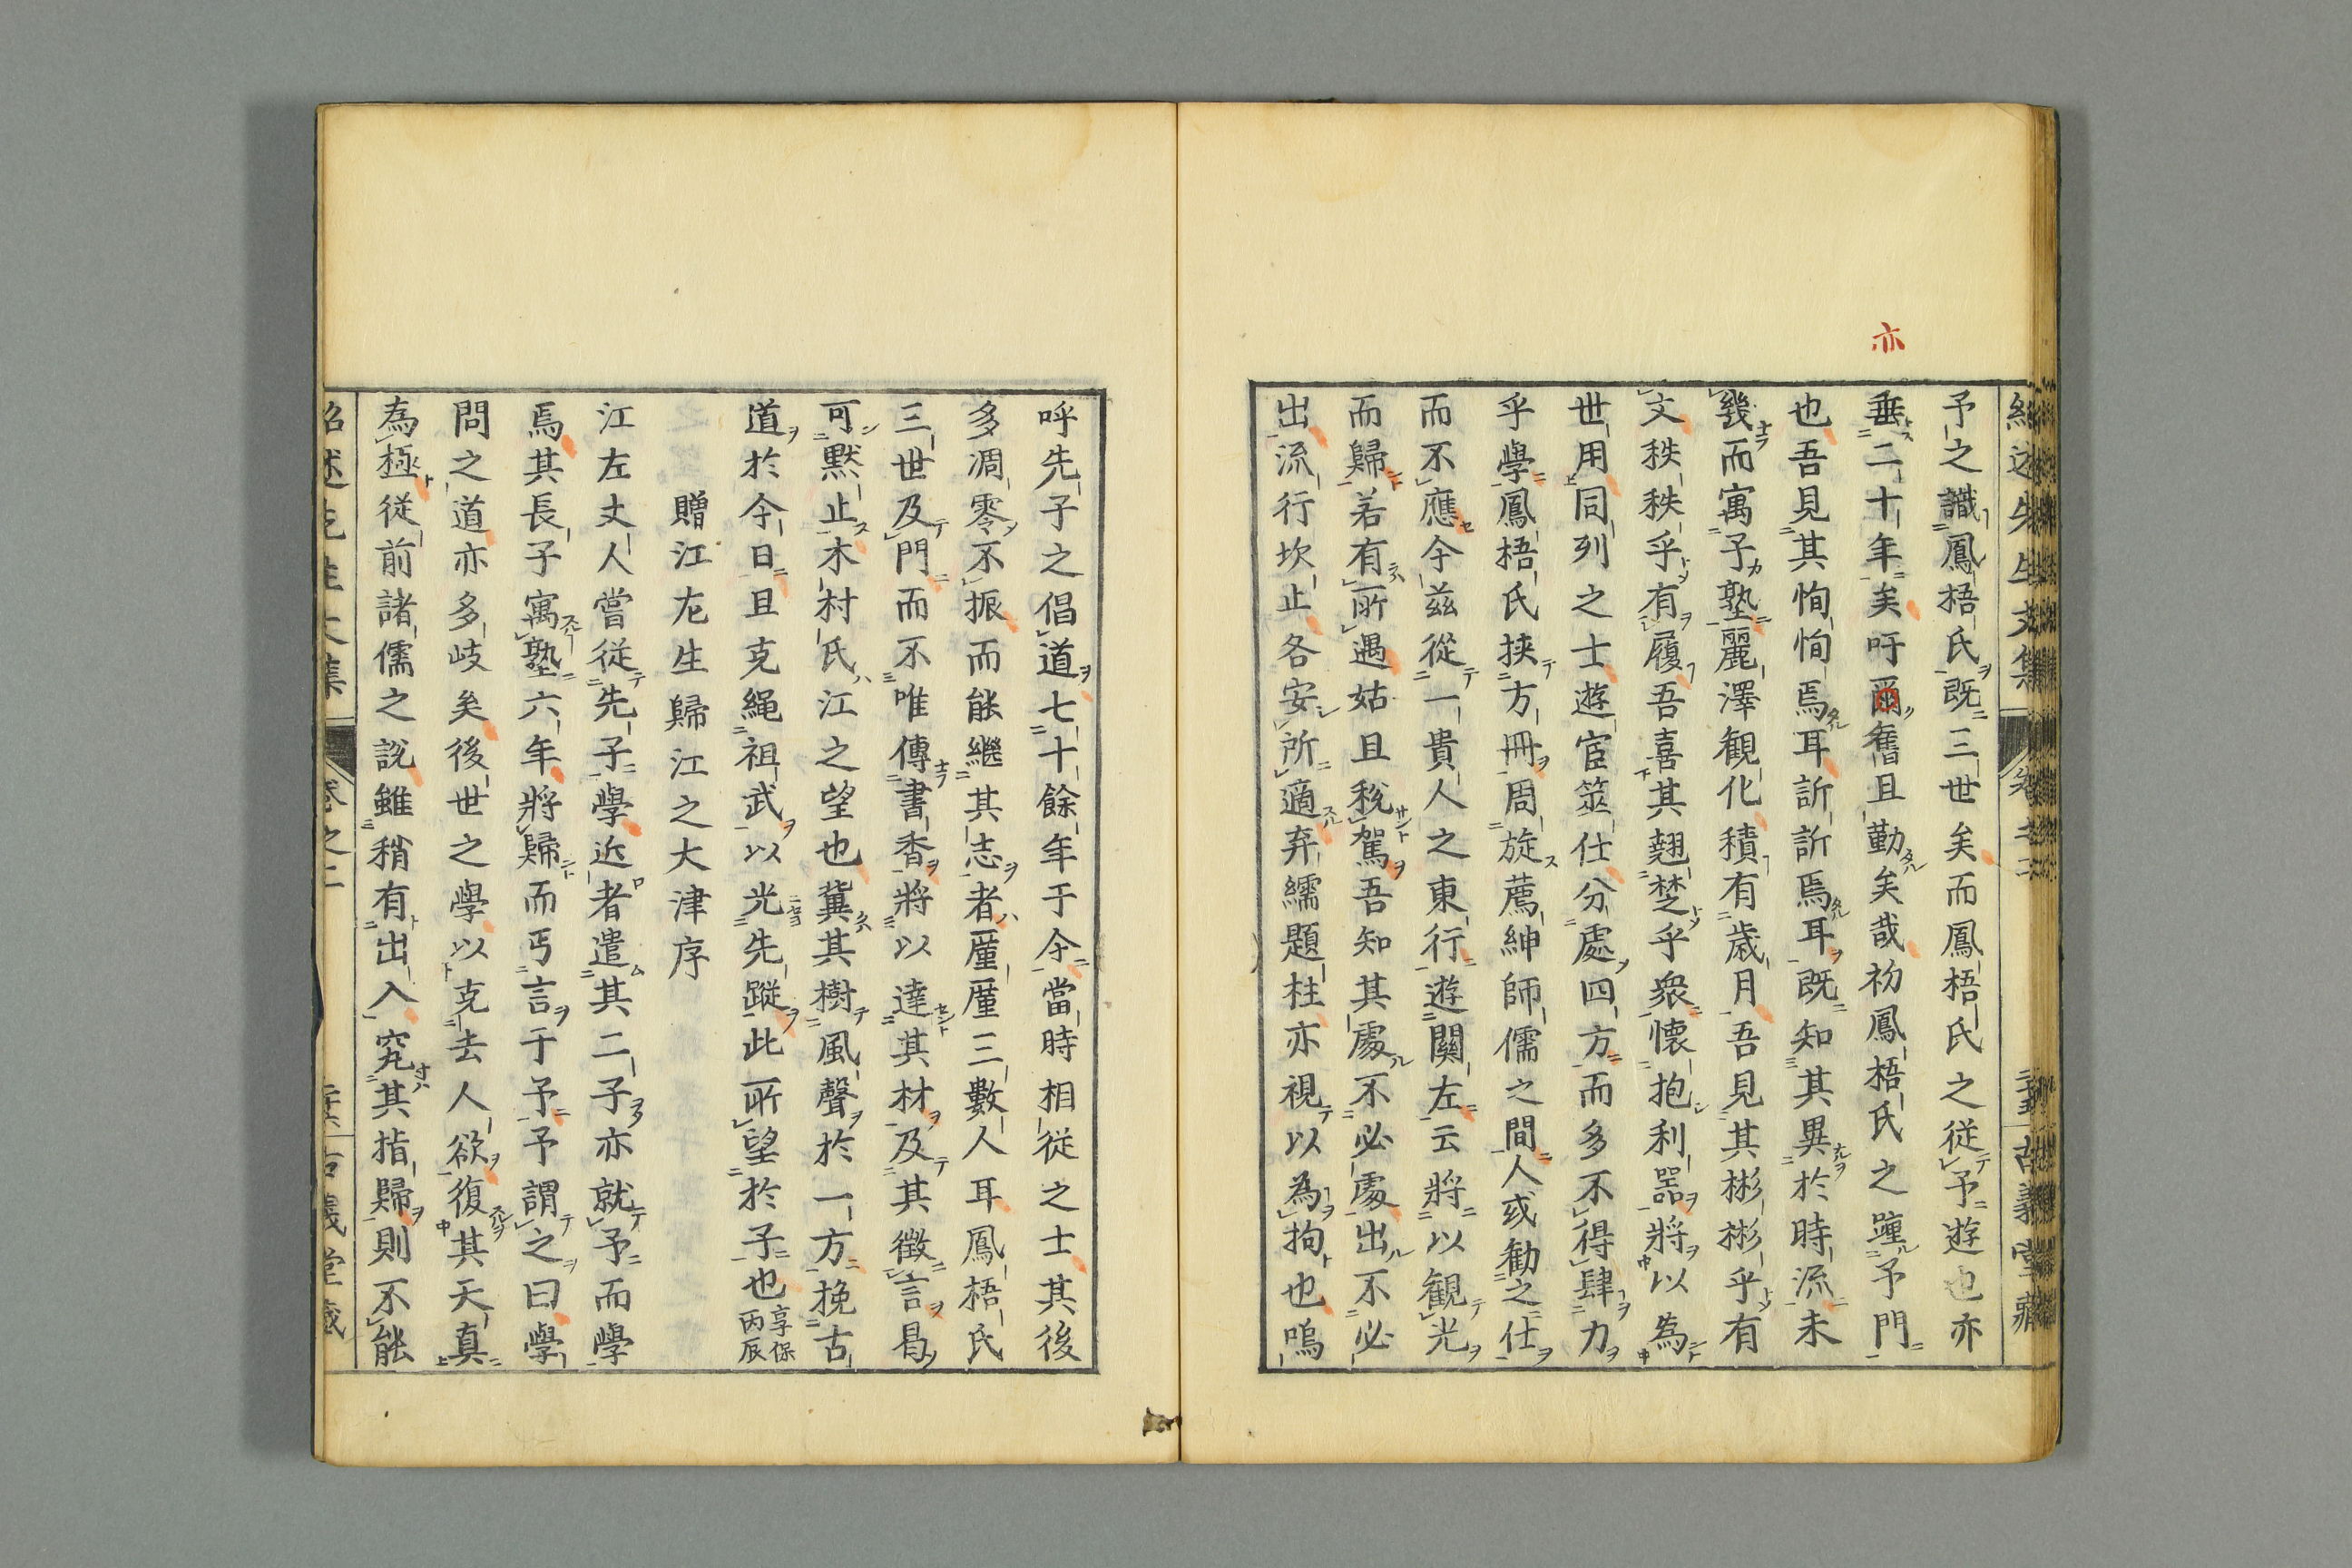 亦
予之識鳳梧氏既三世矣而鳳梧氏之從予遊也亦
垂二十年矣吁爾奮且勤矣哉初鳳梧氏之踵予門
也吾見其恂恂焉耳訢訢焉耳既知其異於時流未
幾而寓予塾麗澤観化積有歳月吾見其彬彬乎有
文秩秩乎有履吾喜其翹楚乎衆懐抱利器將以為
世用同列之士遊宦筮仕分處四方而多不得肆力
乎學鳳梧氏挟方冊周旋薦紳師儒之間人或勧之仕
而不應今兹從一貴人之東行遊關左云將以観光
而歸若有所遇姑且税駕吾知其處不必處出不必
出流行坎止各安所適弃繻題柱亦視以為拘也嗚
呼先子之倡道七十餘年于今當時相從之士其後
多凋零不振而能継其志者厪厪三數人耳鳳梧氏
三世及門而不唯傳書香將以達其材及其徵言曷
可默止木村氏江之望也冀其樹風聲於一方挽古
道於今日且克繩祖武以光先蹤此所望於子也享保丙辰
贈江左生歸江之大津序
江左丈人嘗從先子學近者遣其二子亦就予而學
焉其長子寓塾六年將歸而丐言于予予謂之曰學
問之道亦多岐矣後世之學以克去人欲復其天真
為極從前諸儒之説雖稍有出入究其指歸則不能
紹述先生文集 卷之二 古義堂藏